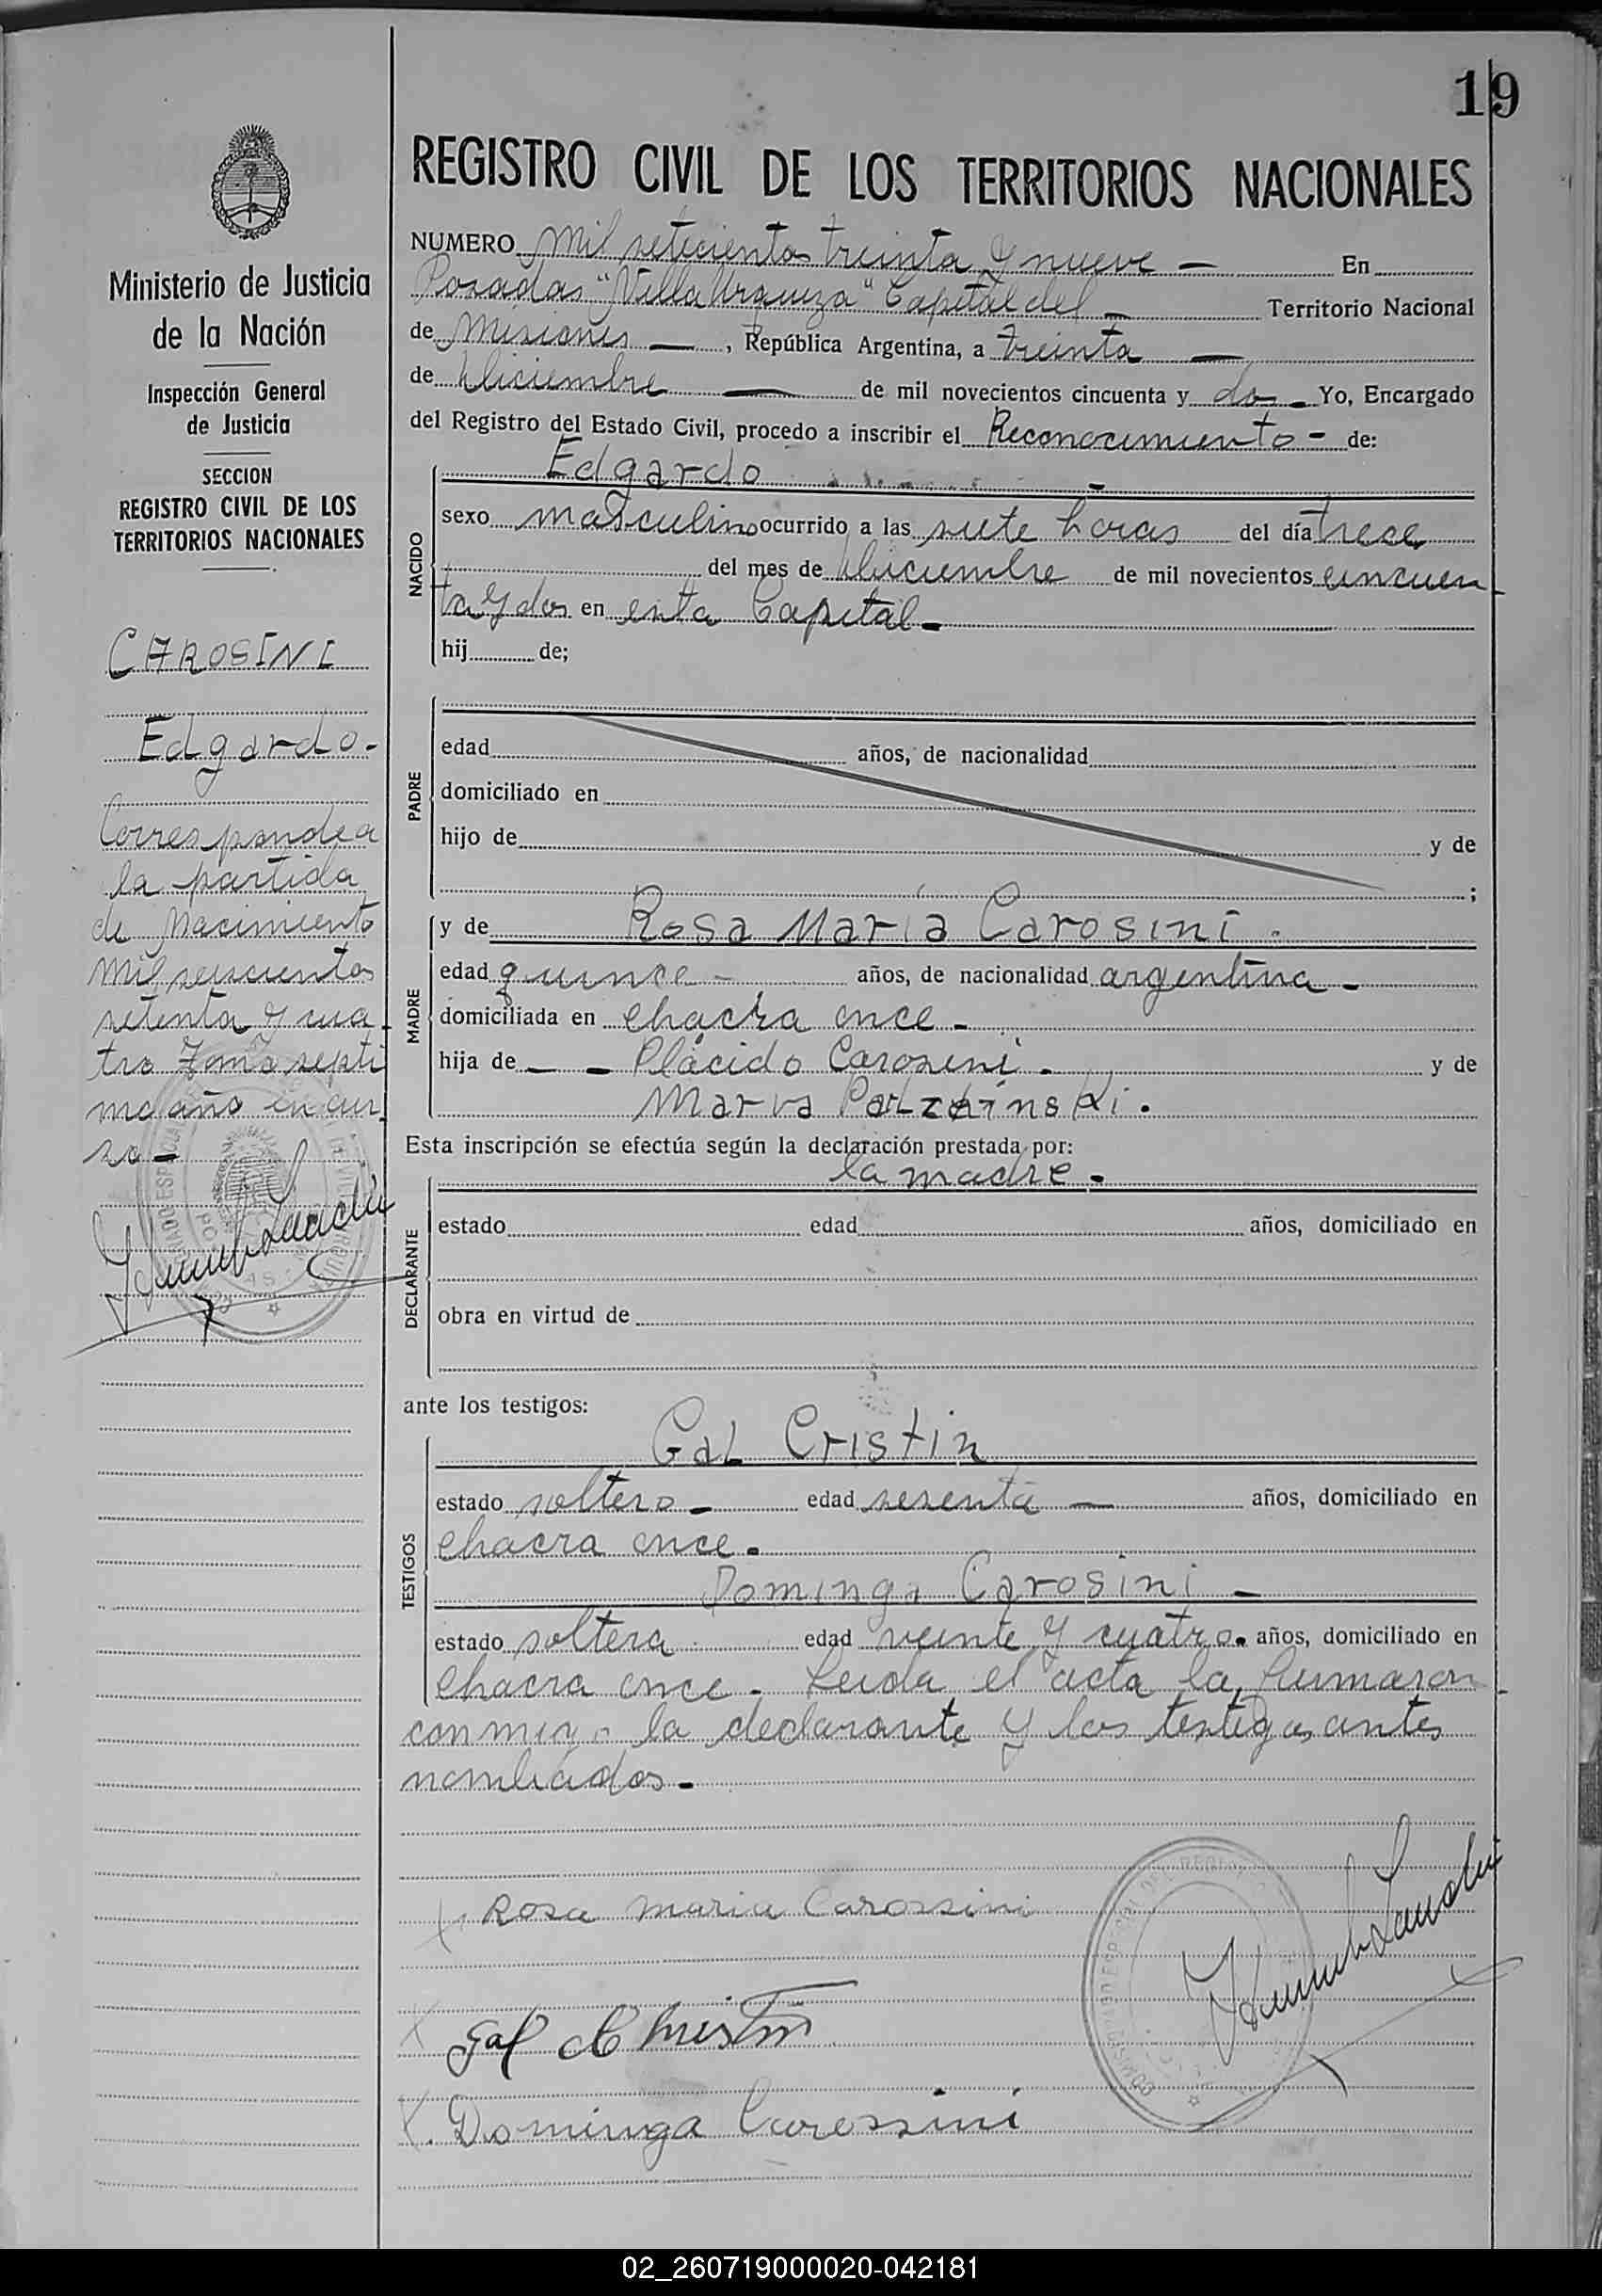 19
REGISTRO CIVIL DE LOS TERRITORIOS NACIONALES
NUMERO mil setecientos treinta y nueve — En
Posadas "Villa Urquiza" Capital del — Territorio Nacional
de Misiones —, República Argentina, a treinta —
de diciembre — de mil novecientos cincuenta y dos — Yo, Encargado
del Registro del Estado Civil, procedo a inscribir el Reconocimiento - de:
Edgardo -
NACIDO
sexo masculino ocurrido a las siete horas del día trece
del mes de diciembre de mil novecientos cincuen
ta y dos en esta Capital -
hij de;
PADRE
edad años, de nacionalidad
domiciliado en
hijo de y de
;
MADRE
y de Rosa María Carosini .
edad quince - años, de nacionalidad argentina -
domiciliada en chacra once -
hija de - - Plácido Carosini - y de
Esta inscripción se efectúa según la declaración prestada por:
la madre -
DECLARANTE
estado edad años, domiciliado en
obra en virtud de
ante los testigos:
TESTIGOS
Gal Cristin
estado soltero - edad sesenta — años, domiciliado en
chacra once -
Dominga Carosini -
estado soltera edad veinte y cuatro - años, domiciliado en
chacra once - Leida el acta la firmaron
conmigo la declarante y los testigos antes
nombrados -
Rosa Maria Carossini
Gal Christin
Dominga Carossini
Ministerio de Justicia
de la Nación
Inspección General
de Justicia
SECCION
REGISTRO CIVIL DE LOS
TERRITORIOS NACIONALES
CAROSINI
Edgardo -
Corresponde a
la partida
de Nacimiento
mil seiscientos
setenta y cua
tro Tomo sépti
mo año en cur
so -
02_260719000020-042181